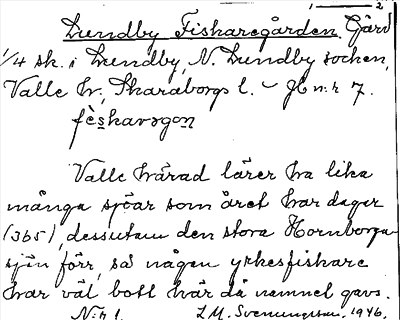 2
Lundby Fiskaregården, Gård
1/4 sk. i Lundby, N. Lundby socken,
Valle hd, Skaraborgs l. – Jb nr 7.
fèskaregon
Valle härad lärer ha lika
många sjöar som året har dagar
(365), dessutom den stora Hornborga-
sjön förr, så någon yrkesfiskare
har väl bott här då namnet gavs.
N:r 1. L. M. Svenungsson, 1946.